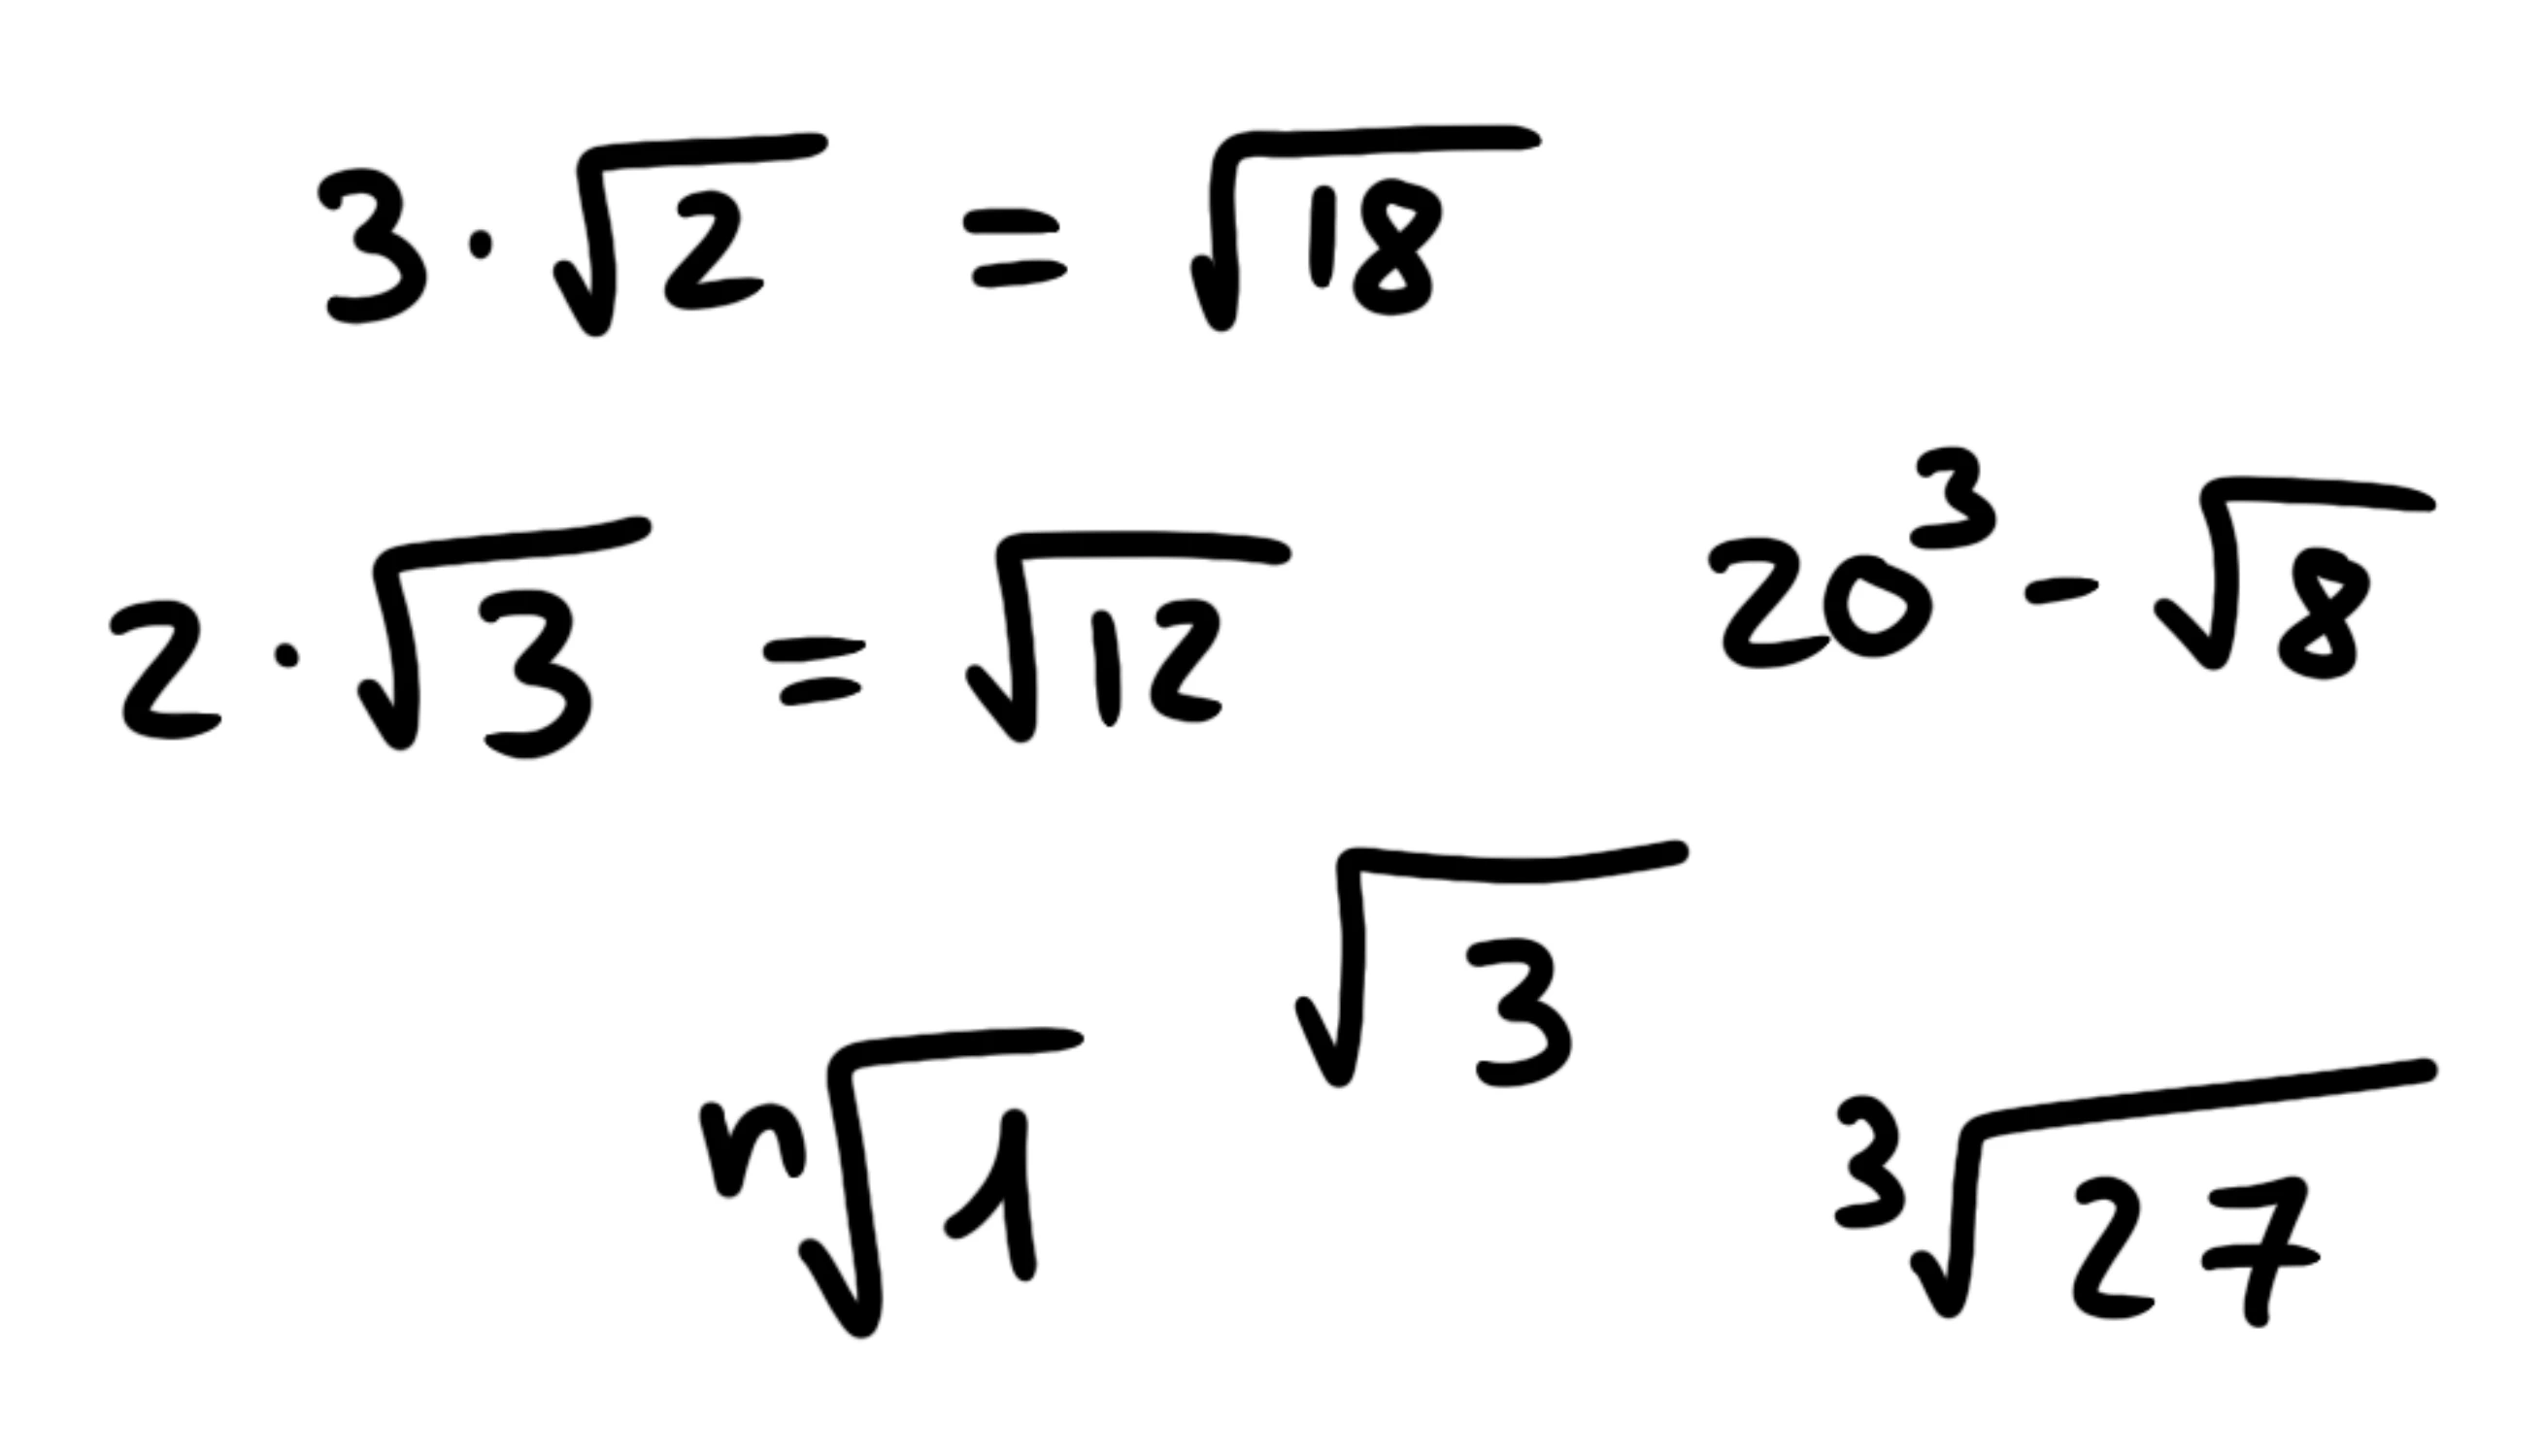 3·√2 = √18
2·√3 = √12
20³-√8
√3
ⁿ√1
³√27